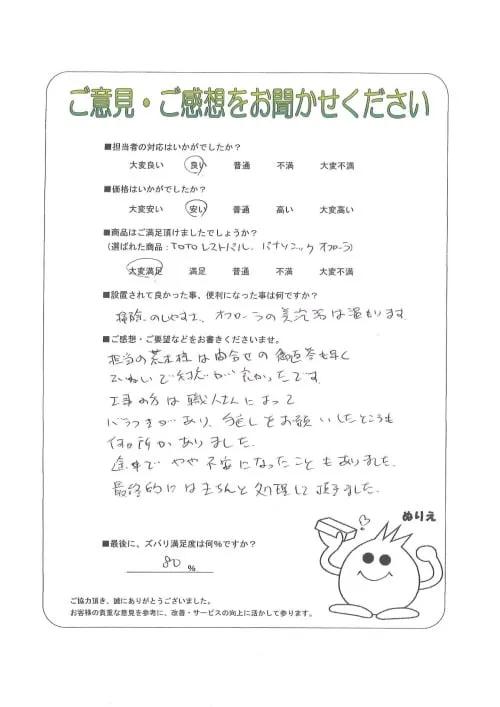 ご意見・ご感想をお聞かせください
■担当者の対応はいかがでしたか？
大変良い 良い 普通 不満 大変不満
■価格はいかがでしたか？
大変安い 安い 普通 高い 大変高い
■商品はご満足頂けましたでしょうか？
(選ばれた商品：TOTOレストパル、パナソニック オフローラ)
大変満足 満足 普通 不満 大変不満
■設置されて良かった事、便利になった事は何ですか？
掃除のしやすさ、オフローラの美泡湯は温もります
■ご感想・ご要望などをお書きくださいませ。
担当の荒木様は問合せの御返答も早く
ていねいで対応が良かったです。
工事の方は職人さんによって
バラつきがあり、手直しをお願いしたところも
何ヶ所かありました。
途中でやや不安になったこともありました。
最終的にはきちんと処理して頂きました。
ぬりえ
■最後に、ズバリ満足度は何％ですか？
80 ％
ご協力頂き、誠にありがとうございました。
お客様の貴重な意見を参考に、改善・サービスの向上に活かして参ります。